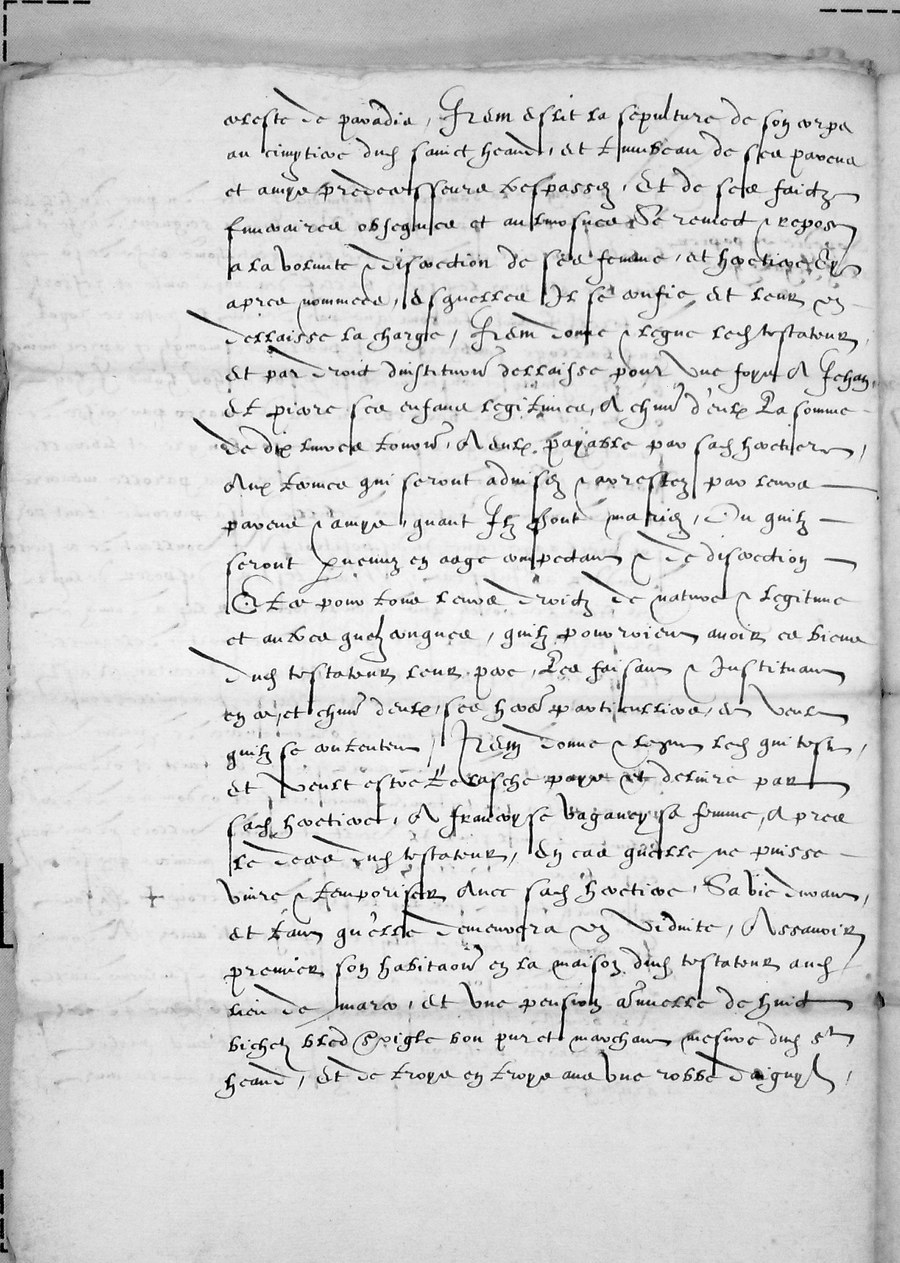 celeste de paradis, Item eslit la sepulture de son corps
au cimptiere dud sainct heand, et tumbeau de ses parens
et amys predecesseurs trespassez, Et de ses faictz
funeraires obseques et aulmosnes Se remect & repose
a la volunte & discretion de ses femme, et heretiere
apres nommees, esquelles Il se confie et leur en
dellaisse la charge, Item donne & legue led testateur,
et par droict dinstitution dellaisse pour une foys A Jehan,
et pierre ses enfans legitimes, A chun d'eulx La somme
de dix livres tournois, A eulx payable par sad heretiere,
Aux termes qui seront advisez & arrestez par leurs
parens & amys, quant Ilz seront mariez, Ou quilz
seront parvenuz en aage competant & de discretion
Et ce pour tous leurs droictz de nature & legitime
et aultres quelzconques, quilz pourroient avoir es biens
dud testateur leur pere, Les faisant & Instituant
en ce, et chun deulx, ses heretiers particulliers, et veult
quilz se contentent, Item donne & legue led testateur,
et veult estre relasche paye et delivre par
sad heretiere, A francoyse vaganey sa femme, Apres
le deces dud testateur, En cas quelle ne puisse
vivre & temporiser Avec sad heretiere, Sa vie durant,
et tant qu'elle demeurera en viduite, Assavoir
premier son habitaon en la maison dud testateur aud
lieu de marco, et une pension annuelle de huict
bichetz bled seigle bon pur et marchant mesure dud st
heand, Et de troys en troys ans une robbe